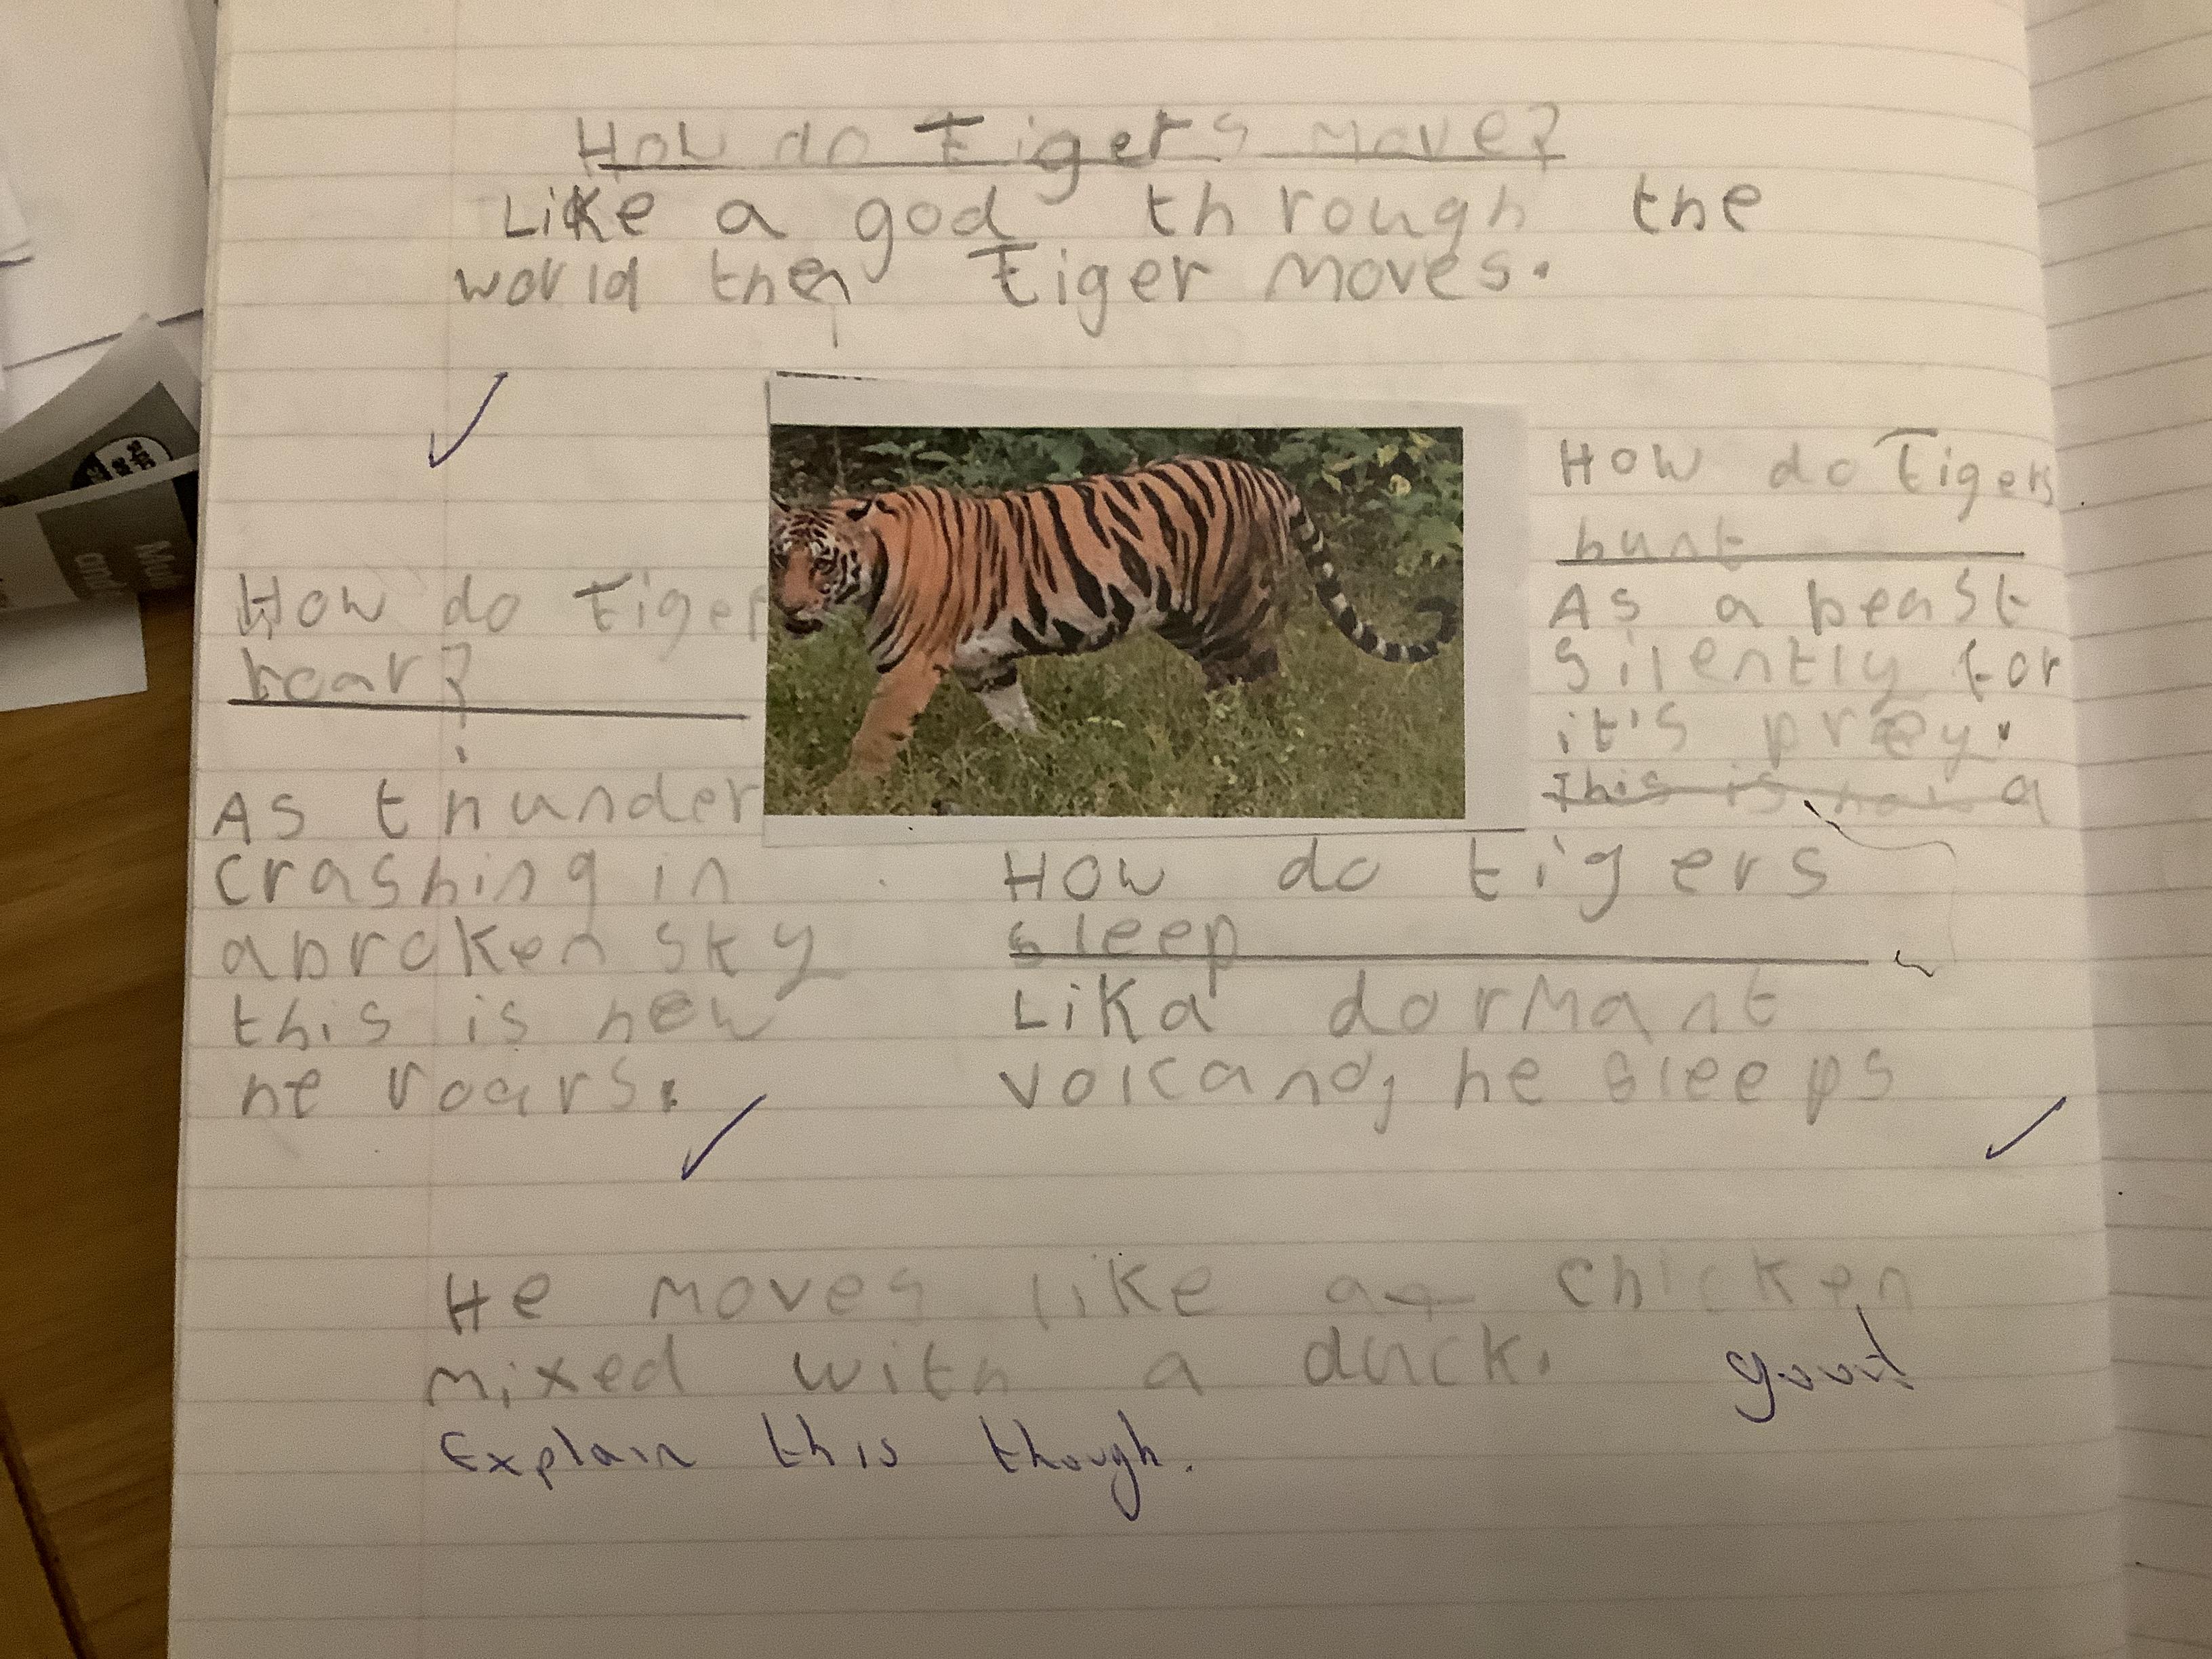 How do Tigers move?
Like a god through the
world the Tiger moves.
How do Tiger
roar?
As thunder
crashing in
a broken sky
this is how
he roars.
How do Tigers
hunt
As a beast
silently for
it's prey.
This is how a
How do tigers
sleep
Lika dormant
volcano, he sleeps
He moves like a chicken
mixed with a duck.
good!
Explain this though.